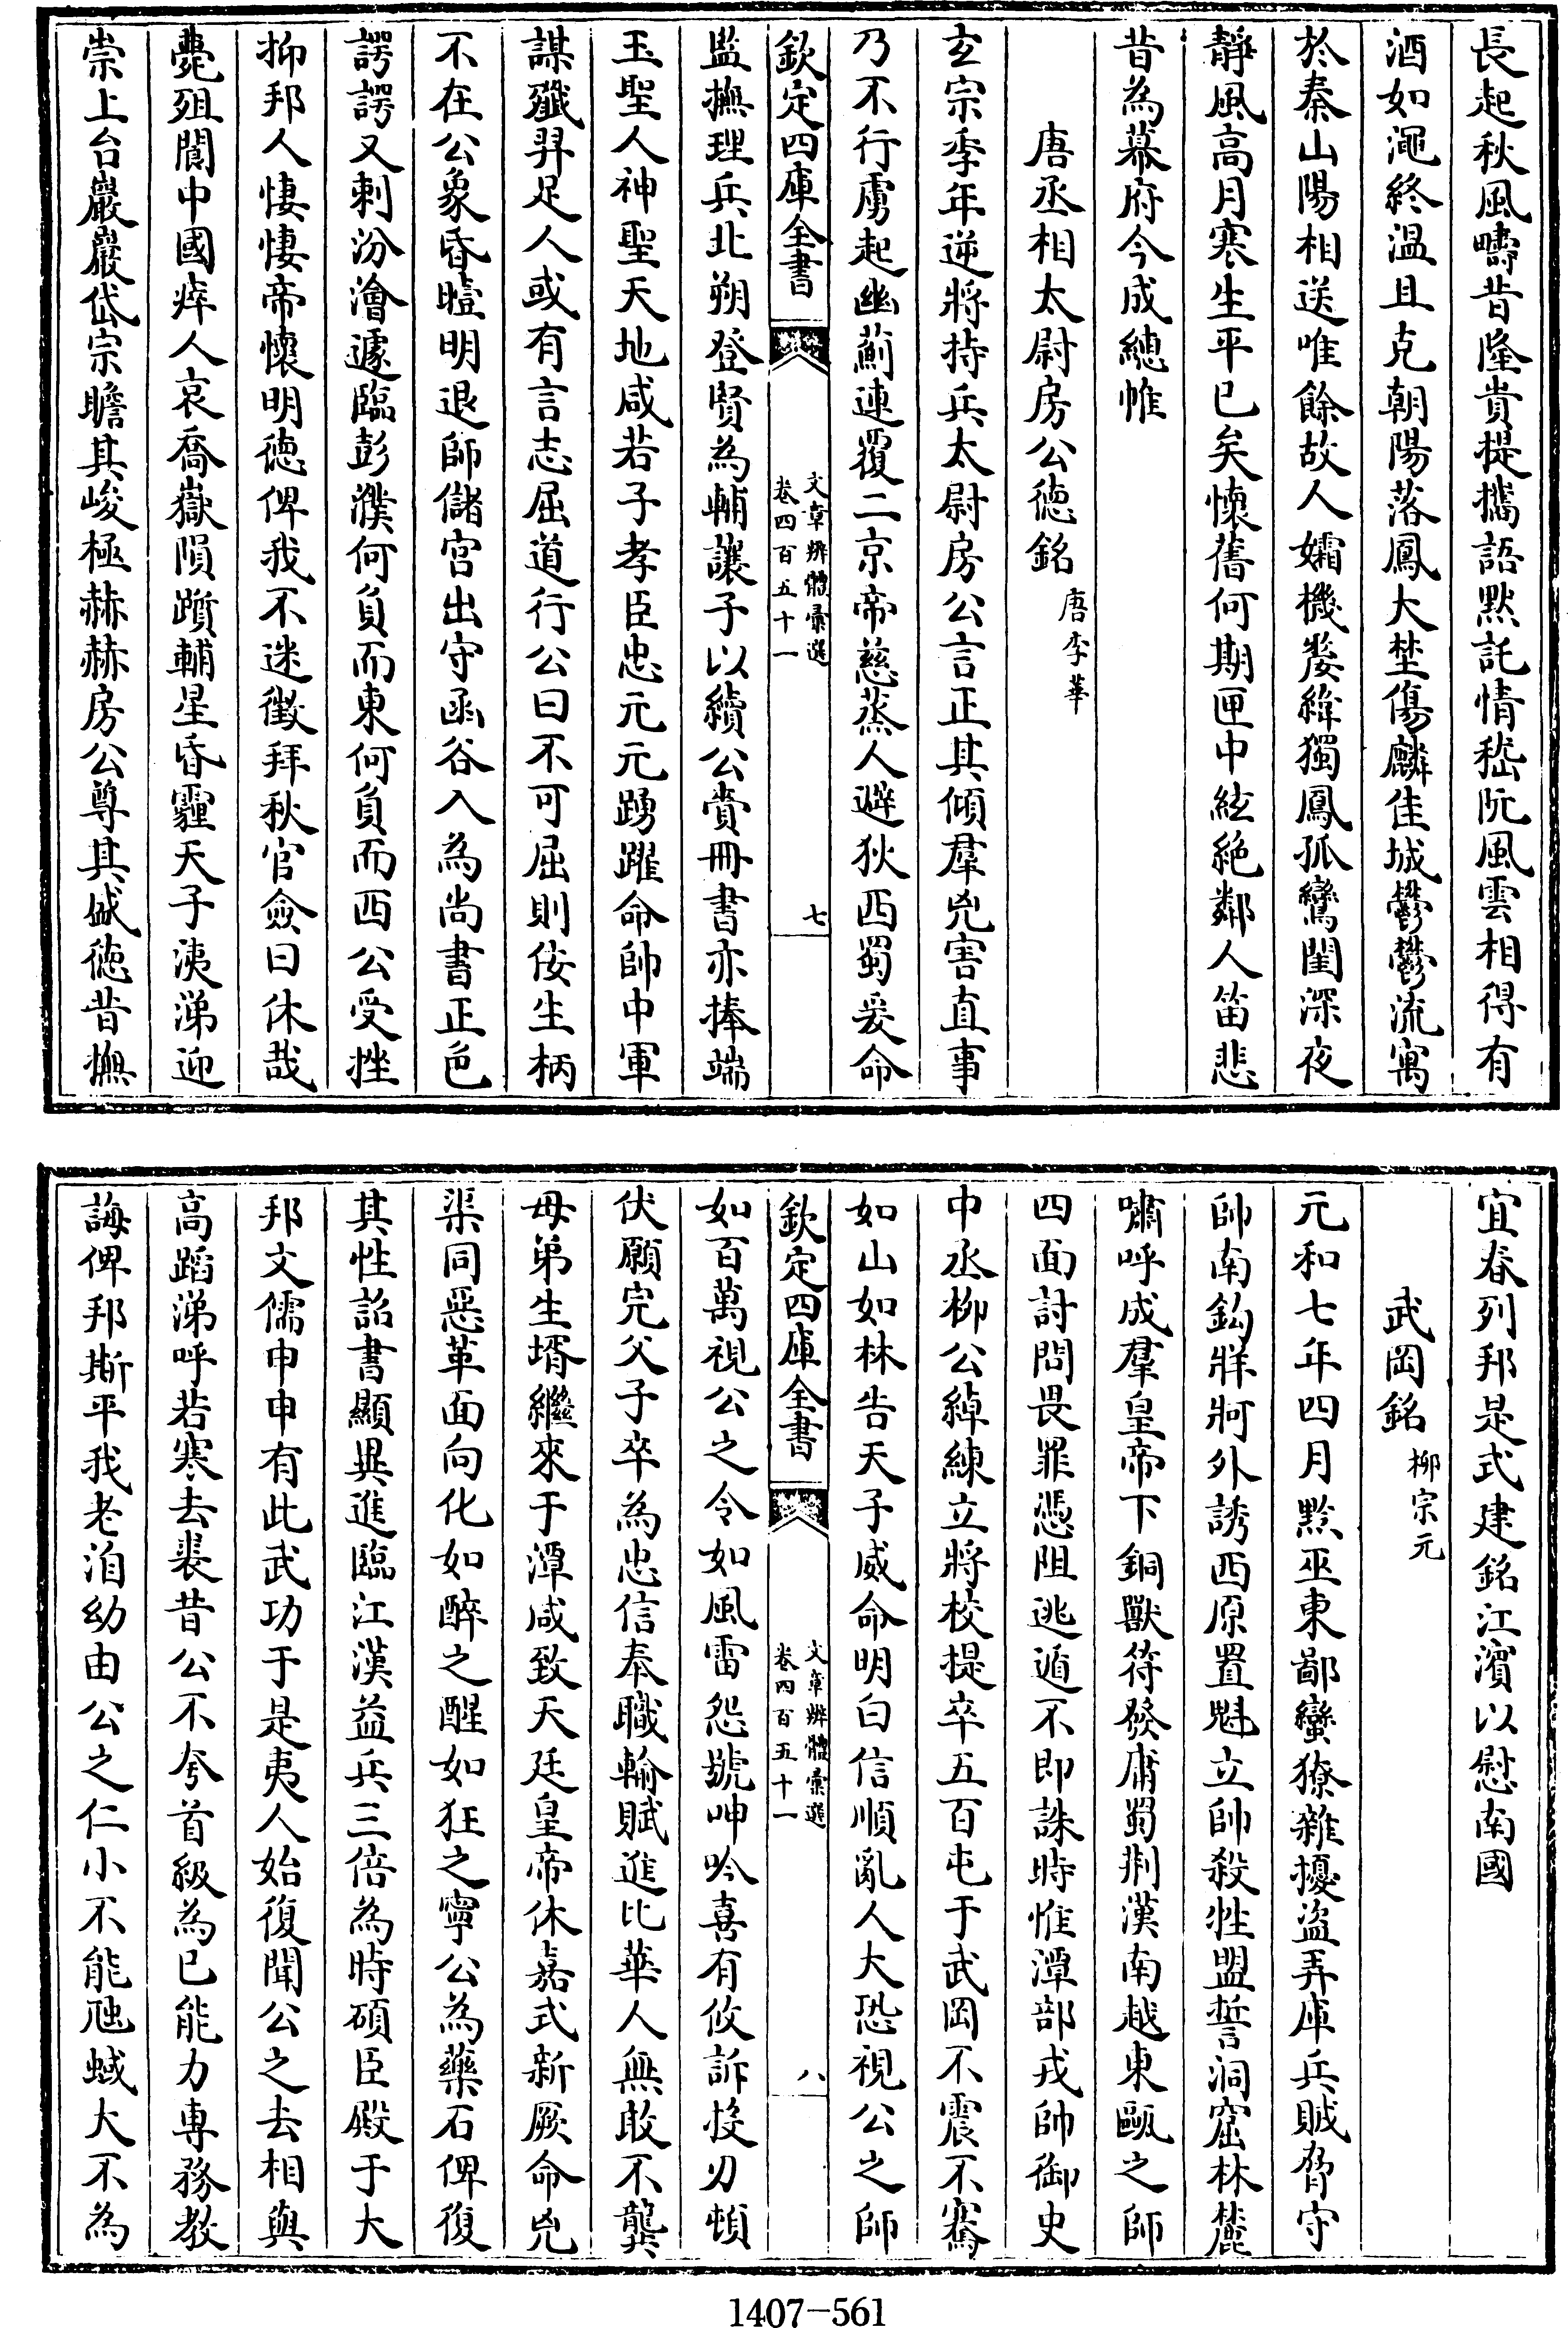 長起秋風疇昔隆貴提攜語默託情嵇阮風雲相得有
酒如澠終溫且克朝陽落鳳大埜傷麟佳城鬱鬱流寓
於秦山陽相送唯餘故人孀機嫠緯獨鳳孤鸞閨深夜
靜風高月寒生平已矣懷舊何期匣中絃絶鄰人笛悲
昔為幕府今成繐帷
唐丞相太尉房公德銘 唐李華
玄宗季年逆將持兵太尉房公言正其傾羣兇害直事
乃不行虜起幽薊連覆二京帝慈蒸人避狄西蜀爰命
欽定四庫全書
文章辨體彙選
卷四百五十一
七
監撫理兵北朔登賢為輔讓子以續公賫冊書亦捧端
玉聖人神聖天地咸若子孝臣忠元元踴躍命帥中軍
謀殲羿足人或有言志屈道行公曰不可屈則佞生柄
不在公象昏曀明退師儲宮出守函谷入為尚書正色
諤諤又刺汾澮遽臨彭濮何負而東何負而西公受挫
抑邦人悽悽帝懷明德俾我不迷徵拜秋官僉曰休哉
薨殂閬中國瘁人哀喬嶽隕躓輔星昏霾天子洟涕迎
崇上台巖巖岱宗瞻其峻極赫赫房公尊其盛德昔撫
宜春列邦是式建銘江濱以慰南國
武岡銘 柳宗元
元和七年四月黔巫東鄙蠻獠雜擾盜弄庫兵賊脅守
帥南鈎牂牁外誘西原置魁立帥殺牲盟誓洞窟林麓
嘯呼成羣皇帝下銅獸符發庸蜀荆漢南越東甌之師
四面討問畏罪憑阻逃遁不即誅時惟潭部戎帥御史
中丞柳公綽練立將校提卒五百屯于武岡不震不騫
如山如林告天子威命明白信順亂人大恐視公之師
欽定四庫全書
文章辨體彙選
卷四百五十一
八
如百萬視公之令如風雷怨號呻吟喜有攸訴投刃頓
伏願完父子卒為忠信奉職輸賦進比華人無敢不龔
母弟生壻繼來于潭咸致天廷皇帝休嘉式新厥命兇
渠同惡革面向化如醉之醒如狂之寧公為藥石俾復
其性詔書顯異進臨江漢益兵三倍為時碩臣殿于大
邦文儒申申有此武功于是夷人始復聞公之去相與
高蹈涕呼若寒去裘昔公不夸首級為已能力專務教
誨俾邦斯平我老洎幼由公之仁小不能虺蜮大不為
1407-561